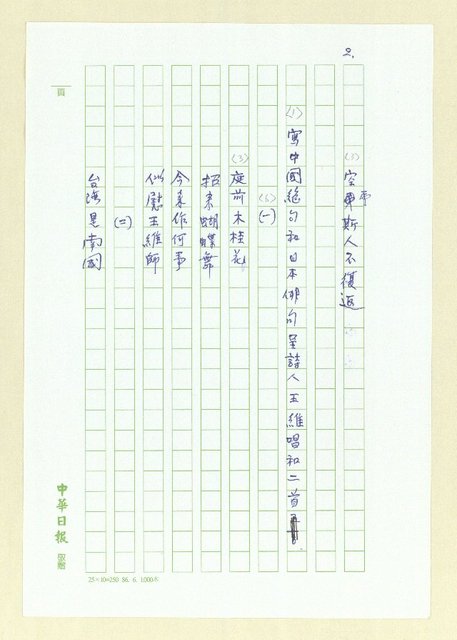 2.
(3) 空勇斯人不復返
(1) 寫中國絕句和日本俳句呈詩人王維唱和二首
(6) (一)
(3) 庭前木桂花
招来蝴蝶舞
今来作何事
似慰王維師
(二)
台灣是南國
頁
中華日報
25×10=250 86. 6. 1000本